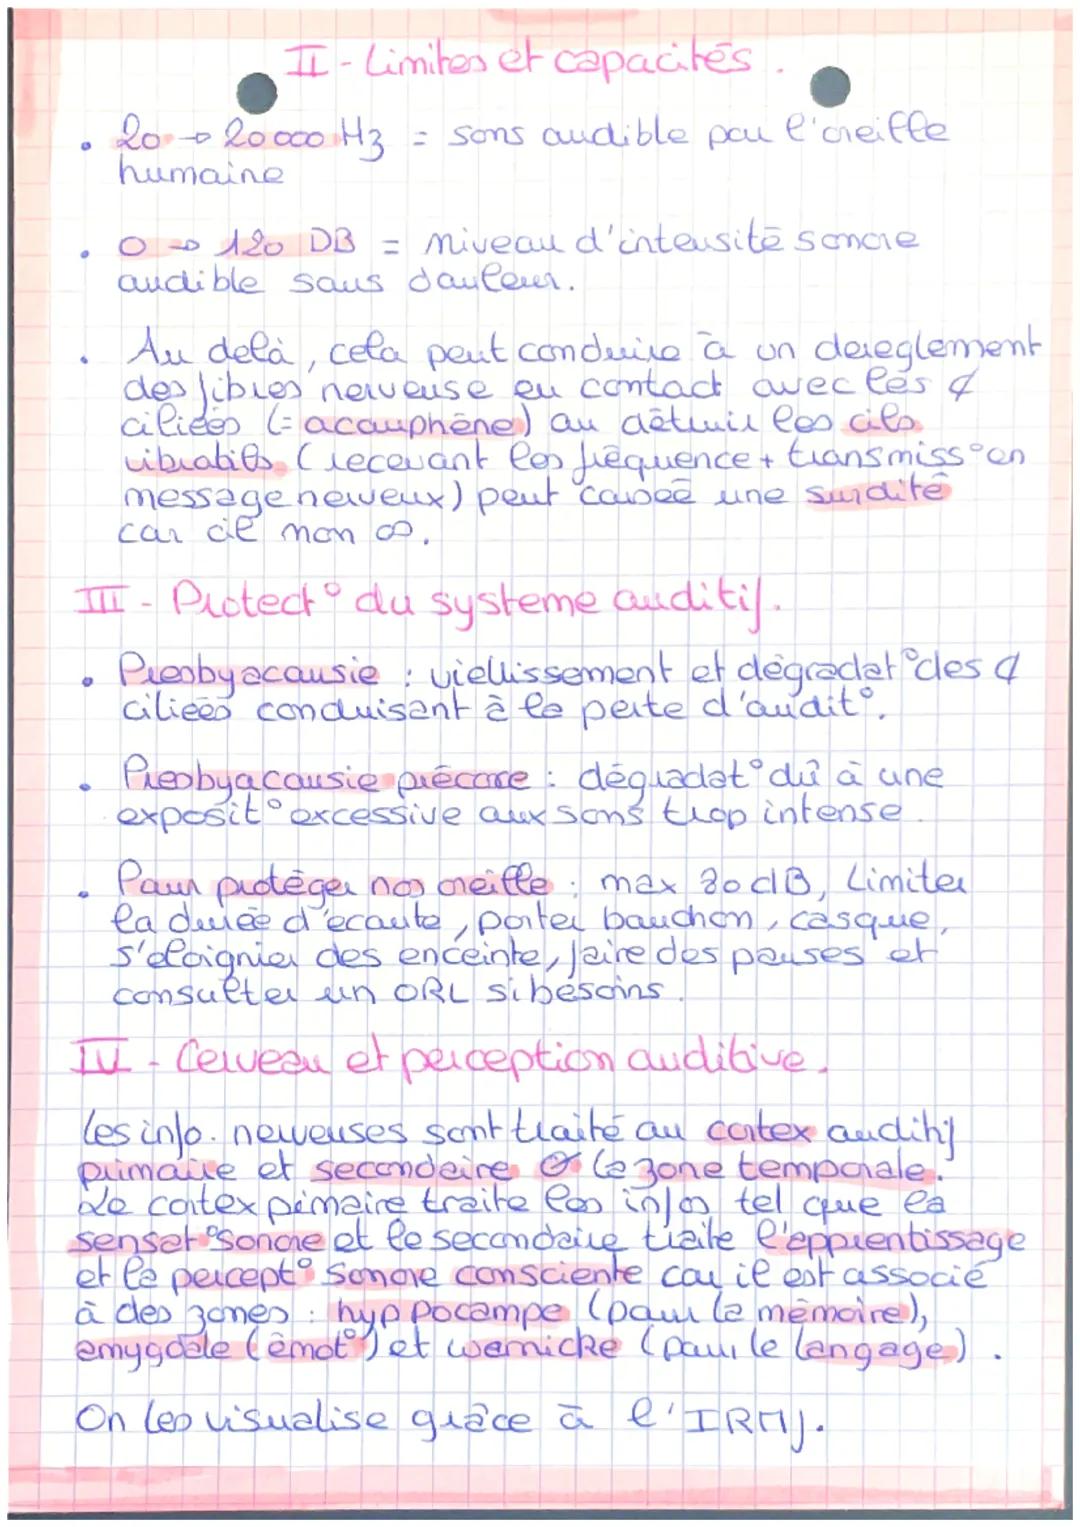 II - Limites et capacités.
• 20 → 20 000 Hz = sons audible par l'oreille
humaine
• 0 → 120 DB = niveau d'intensité sonore
audible sans douleur.
• Au delà, cela peut conduire à un dereglement
des fibres nerveuse en contact avec les ¢
ciliées (= acouphène) ou détruir les cils
vibratils (recevant les fréquence + transmiss° en
message nerveux) peut causée une surdité
car cil non ∞.
III - Protect° du systeme auditif.
• Presbyacousie : viellissement et dégradat° des ¢
ciliées conduisant à la perte d'audit°.
• Presbyacousie précoce : dégradat° dû à une
exposit° excessive aux sons trop intense.
• Pour protéger nos oreille : max 80 dB, Limiter
la durée d'écoute, porter bouchon, casque,
s'éloignier des enceinte, faire des pauses et
consulter un ORL si besoins.
IV - Cerveau et perception auditive.
Les info. nerveuses sont traité au cortex auditif
primaire et secondaire la zone temporale.
Le cortex pimaire traite les infos tel que la
sensat° sonore et le secondaire traite l'apprentissage
et la percept° sonore consciente car il est associé
à des zones : hyppocampe (pour la mémoire),
amygdale (émot°) et wernicke (pour le langage).
On les visualise grâce à l'IRMf.